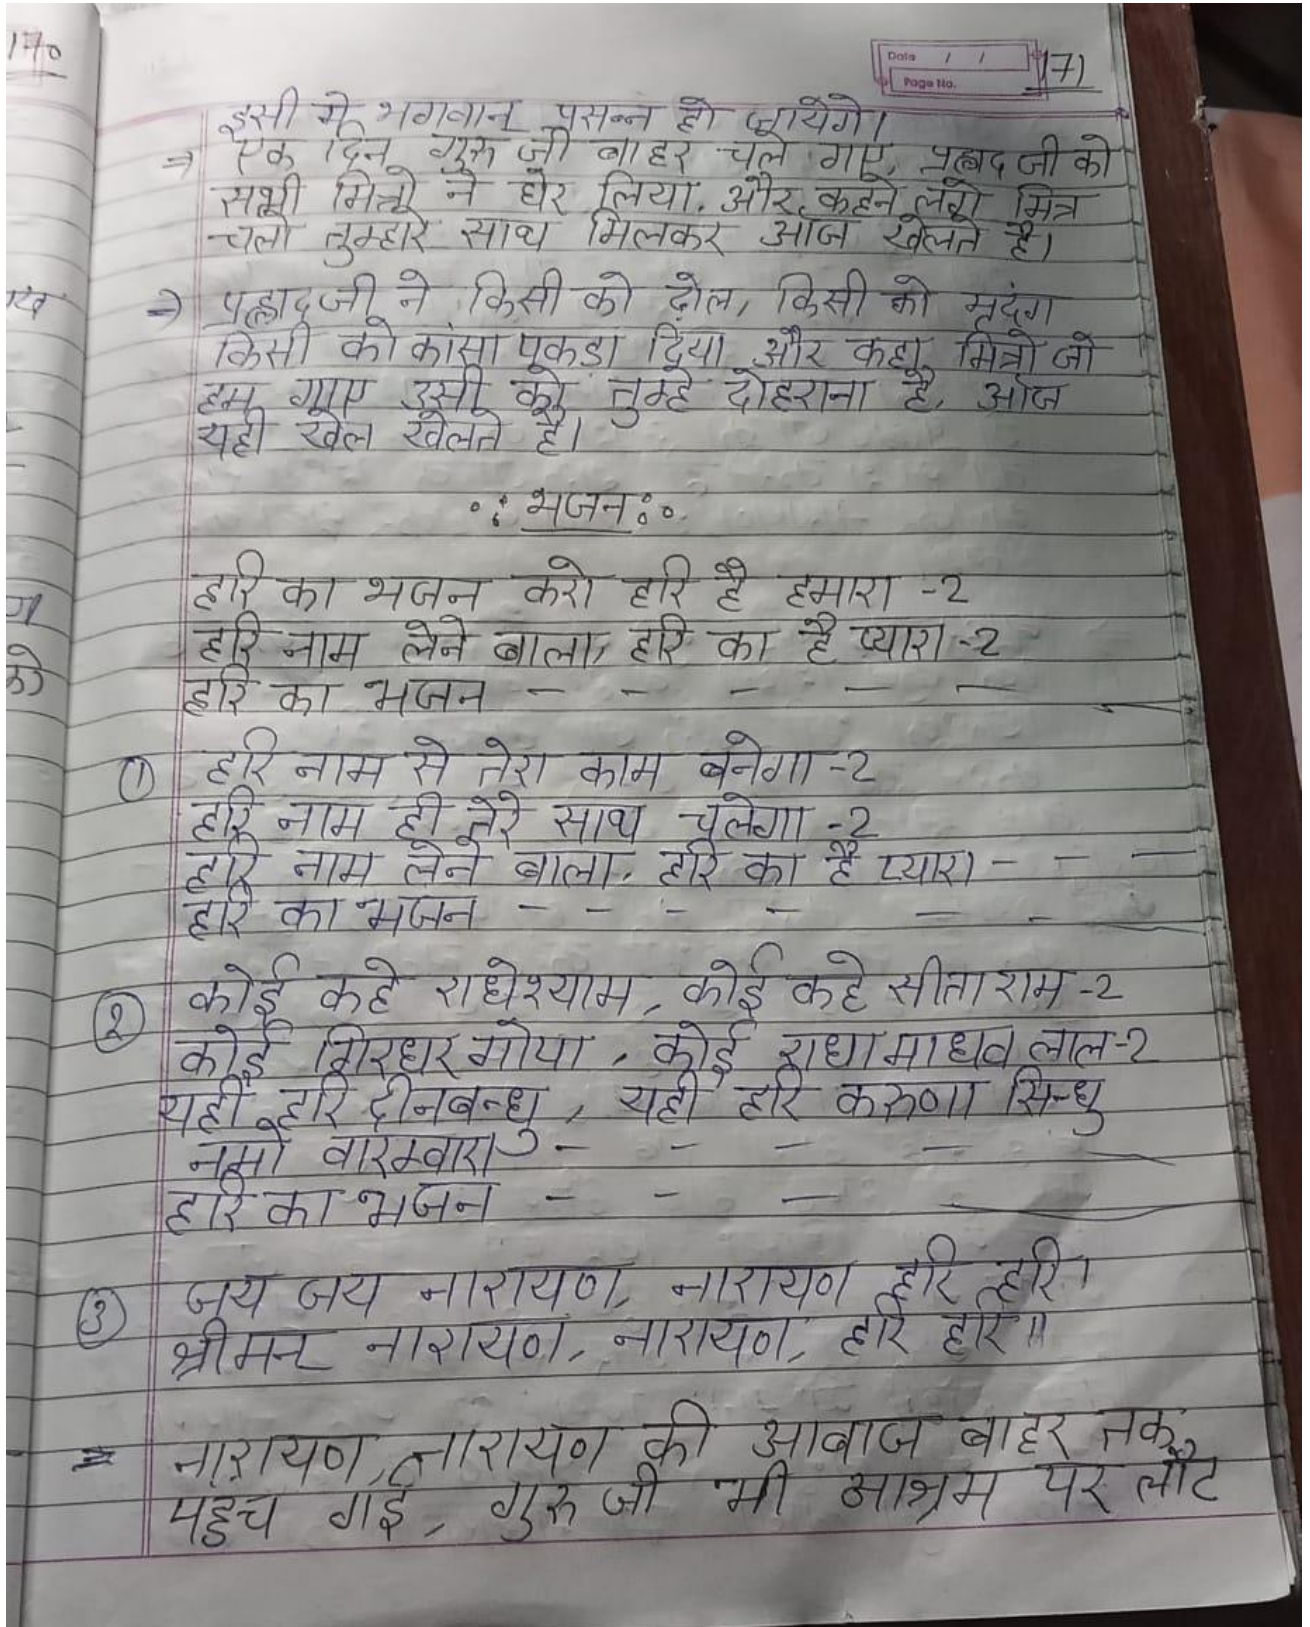 170
Date / /
Page No.
171
इसी मे भगवान् प्रसन्न हो जायेगे।
⇒ एक दिन गुरू जी बाहर चले गए, प्रह्लाद जी को
सभी मित्रो ने घेर लिया, और कहने लगे मित्र
चलो तुम्हारे साथ मिलकर आज खेलते है।
⇒ प्रह्लादजी ने किसी को ढोल, किसी को मृदंग
किसी को कांसा पकडा दिया और कहा मित्रो जो
हम गाए उसी को तुम्हे दोहराना है, आज
यही खेल खेलते है।
भजन
हरि का भजन करो हरि है हमारा -2
हरि नाम लेने बाला, हरि का है प्यारा -2
हरि का भजन - - - - -
① हरि नाम से तेरा काम बनेगा -2
हरि नाम ही तेरे साथ चलेगा -2
हरि नाम लेने बाला, हरि का है प्यारा - - -
हरि का भजन - - - - - -
② कोई कहे राधेश्याम, कोई कहे सीताराम -2
कोई गिरधर गोपा, कोई राधामाधव लाल -2
यही हरि दीनबन्धु, यही हरि करूणा सिन्धु
नमो वारम्वारा - - - -
हरि का भजन - - -
③ जय जय नारायण, नारायण हरि हरि।
श्रीमन् नारायण, नारायण, हरि हरि॥
⇒ नारायण, नारायण की आबाज बाहर तक
पहुंच गई, गुरू जी भी आश्रम पर लौट